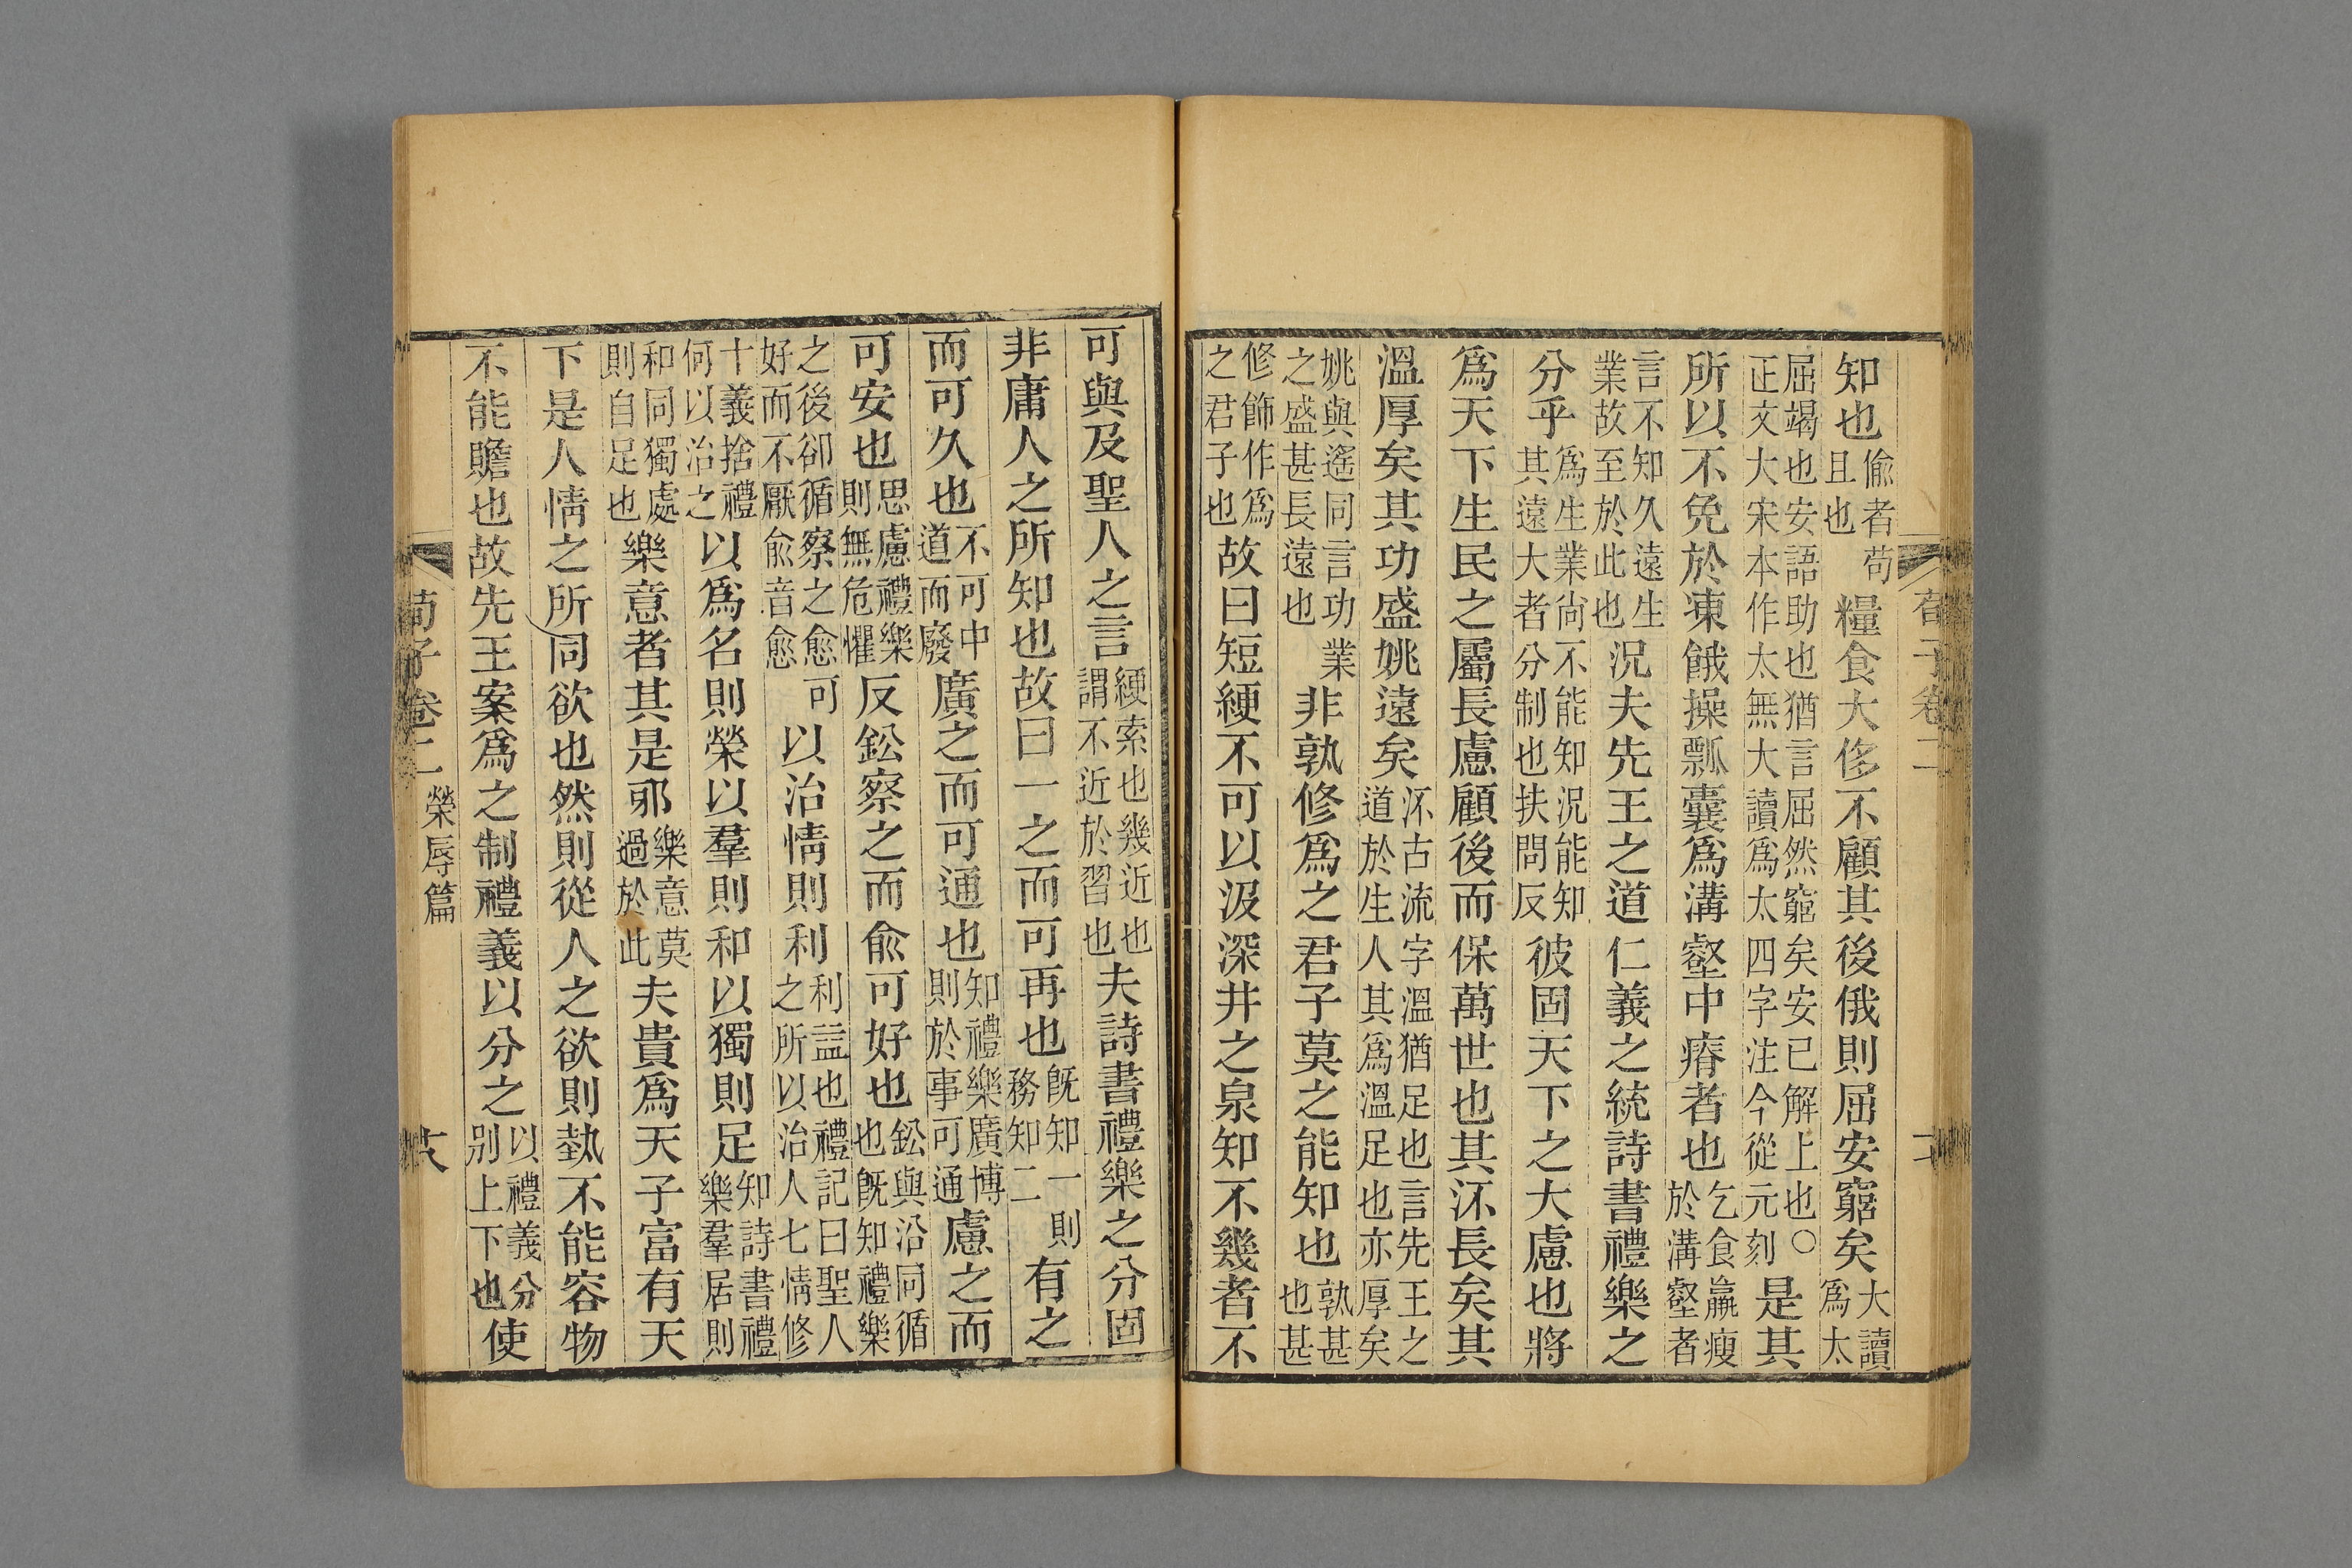 荀子卷二
知也偷者苟且也糧食大侈不顧其後俄則屈安窮矣大讀爲太
屈竭也安語助也猶言屈然窮矣安已解上也○正文大宋本作太無大讀爲太四字注今從元刻是其
所以不免於凍餓操瓢囊爲溝壑中瘠者也乞食羸瘦於溝壑者
言不知久遠生業故至於此也況夫先王之道仁義之統詩書禮樂之
分乎爲生業尙不能知況能知其遠大者分制也扶問反彼固天下之大慮也將
爲天下生民之屬長慮顧後而保萬世也其㳅長矣其
溫厚矣其功盛姚遠矣㳅古流字溫猶足也言先王之道於生人其爲溫足也亦厚矣
姚與遙同言功業之盛甚長遠也非孰修爲之君子莫之能知也孰甚也甚
修飾作爲之君子也故曰短綆不可以汲深井之泉知不幾者不
可與及聖人之言綆索也幾近也謂不近於習也夫詩書禮樂之分固
非庸人之所知也故曰一之而可再也旣知一則務知二有之
而可久也不可中道而廢廣之而可通也知禮樂廣博則於事可通慮之而
可安也思慮禮樂則無危懼反鈆察之而俞可好也鈆與沿同循也旣知禮樂
之後卻循察之愈可好而不厭俞音愈以治情則利利益也禮記曰聖人之所以治人七情修
十義捨禮何以治之以爲名則榮以羣則和以獨則足知詩書禮樂羣居則
和同獨處則自足也樂意者其是邪樂意莫過於此夫貴爲天子富有天
下是人情之所同欲也然則從人之欲則埶不能容物
不能贍也故先王案爲之制禮義以分之以禮義分別上下也使
荀子卷二 榮辱篇